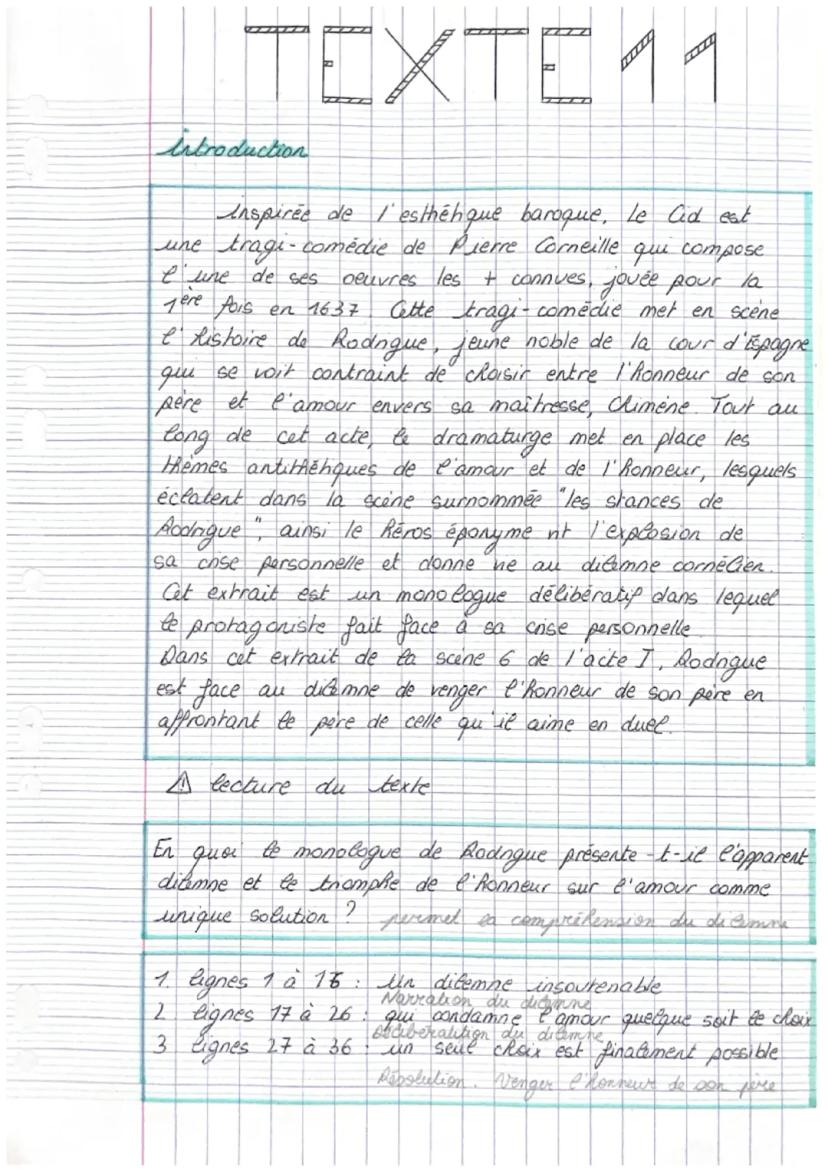 TEXTE 11
introduction
inspirée de l'esthétique baroque, Le Cid est
une tragi-comédie de Pierre Corneille qui compose
l'une de ses oeuvres les + connues, jouée pour la
1ère fois en 1637. Cette tragi-comédie met en scène
l'histoire de Rodrigue, jeune noble de la cour d'Espagne
qui se voit contraint de choisir entre l'honneur de son
père et l'amour envers sa maîtresse, Chimène. Tout au
long de cet acte, le dramaturge met en place les
thèmes antithétiques de l'amour et de l'honneur, lesquels
éclatent dans la scène surnommée "les stances de
Rodrigue", ainsi le héros éponyme vit l'explosion de
sa crise personnelle et donne vie au dilemne cornélien.
Cet extrait est un monologue délibératif dans lequel
le protagoniste fait face à sa crise personnelle.
Dans cet extrait de la scène 6 de l'acte I, Rodrigue
est face au dilemne de venger l'honneur de son père en
affrontant le père de celle qu'il aime en duel.
⚠ lecture du texte
En quoi le monologue de Rodrigue présente-t-il l'apparent
dilemne et le triomphe de l'honneur sur l'amour comme
unique solution ? permet la compréhension du dilemne
1. lignes 1 à 16 : un dilemne insoutenable
Narration du dilemne
2 lignes 17 à 26 : qui condamne l'amour quelque soit le choix
Délibération du dilemne
3 lignes 27 à 36 : un seul choix est finalement possible
Résolution. Venger l'honneur de son père